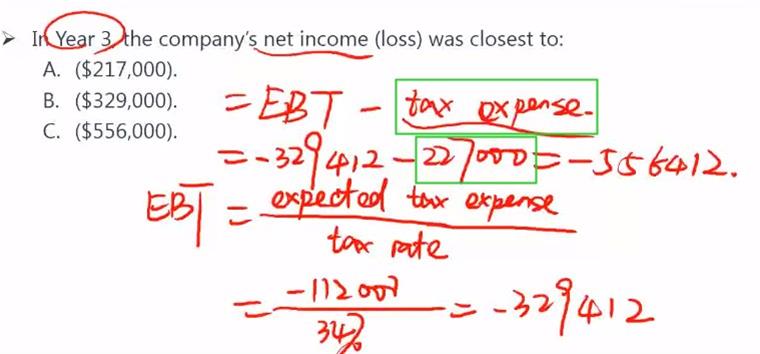 ➢ In Year 3, the company's net income (loss) was closest to:
A. ($217,000).
B. ($329,000).
C. ($556,000).
= EBT - tax expense.
= -329412 - 227000 = -556412.
EBT = expected tax expense
tax rate
= -112000
34%
= -329412